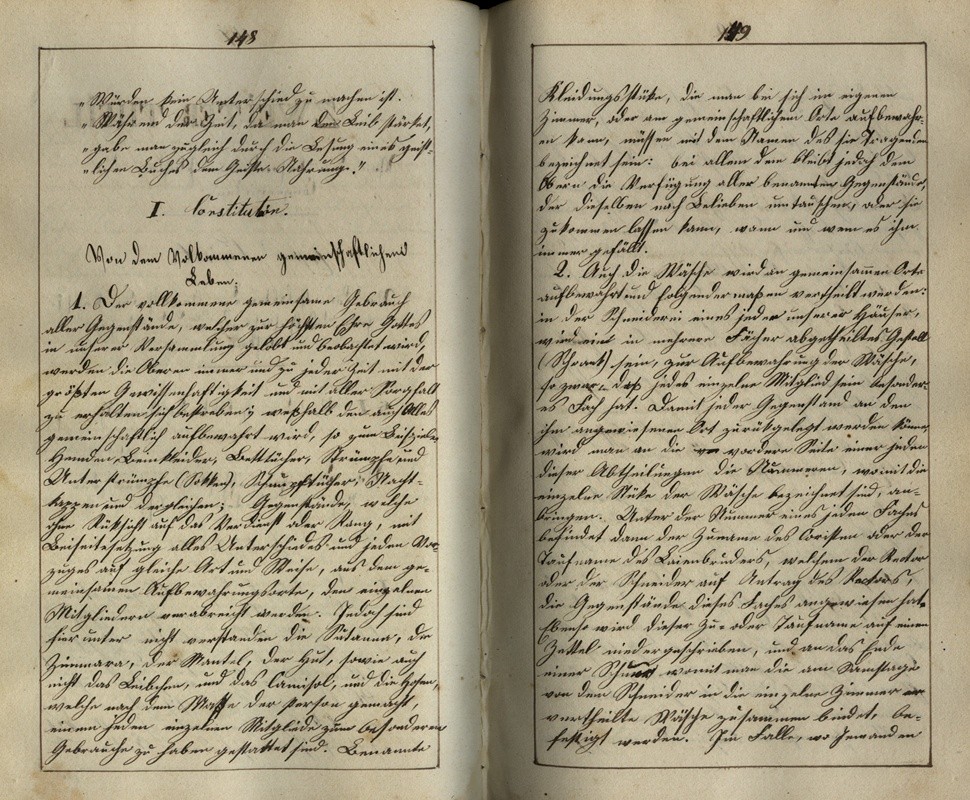 148
„Würden kein Unterschied zu machen ist.
„Während der Zeit, da man den Leib stärket,
„gebe man zugleich durch die Lesung eines geist-
„lichen Buches dem Geiste Nahrung."
I. Constitution.
Von dem Volkommenen gemeinschaftlichen
Leben.
1. Der vollkommene gemeinsame Gebrauch
aller Gegenstände, welcher zur höchsten Ehre Gottes
in unserer Versammlung gelobt und beobachtet wird,
werden die Oberen immer und zu jeder Zeit mit der
größten Gewissenhaftigkeit und mit aller Sorgfalt
zu erhalten sich bestreben; weßhalb den auch Alles
gemeinschaftlich aufbewahrt wird, so zum Beispiele
Hemden, Beinkleider, Betttücher, Strümpfe und
Unterstrümpfe (Sokken), Schnupftücher, Nacht-
kappen und dergleichen; Gegenstände, welche
ohne Rüksicht auf das Verdienst oder Rang, mit
Beiseitesetzung alles Unterschiedes und jeden Vor-
zuges auf gleiche Art und Weise, aus dem ge-
meinsamen Aufbewahrungsorte, den einzelnen
Mitgliedern verabreicht werden. Jedoch sind
hierunter nicht verstanden die Sutanna, die
Zimmara, der Mantel, der Hut, sowie auch
nicht das Leibchen, und das Camisol, und die Hosen,
welche nach dem Maße der Person gemacht,
einem jeden einzelnen Mitgliede zum besonderen
Gebrauche zu haben gestattet sind. Benannte
149
Kleidungsstüke, die man bei sich im eigenen
Zimmer, oder am gemeinschaftlichen Orte aufbewahr-
en kann, müssen mit dem Namen des sie Tragenden
bezeichnet sein: bei allem dem bleibt jedoch dem
Obern die Verfügung aller benannten Gegenstände,
der dieselben nach Belieben umtauschen, oder sie
zukommen lassen kann, wann und wem es ihm
immer gefällt.
2. Auch die Wäsche wird an gemeinsamen Orte
aufbewahrt und folgender maßen vertheilt werden:
in der Schneiderei eines jeden unserer Häuser,
wird ein in mehrere Fächer abgetheiltes Gestell
(Schrank) sein, zur Aufbewahrung der Wäsche,
so zwar, daß jedes einzelne Mitglied sein besonder-
es Fach hat. Damit jeder Gegenstand an den
ihm angewiesenen Ort zurükgelegt werden könne,
wird man an die vordere Seite einer jeden
dieser Abtheilungen die Nummeren, womit die
einzelne Stüke der Wäsche bezeichnet sind, an-
bringen. Unter der Nummer eines jeden Faches
befindet dann der Zuname des Coristen oder der
Taufname des Laienbruders, welchem der Rector
oder der Schneider auf Antrag des Rectors,
die Gegenstände dieses Faches angewiesen hat.
Ebenso wird dieser Zu- oder Taufname auf einen
Zettel niedergeschrieben, und an das Ende
einer Schnur womit man die am Samstage
von dem Schneider in die einzelne Zimmer
vertheilte Wäsche zusammen bindet, be-
festigt werden. Im Falle, wo Jemanden